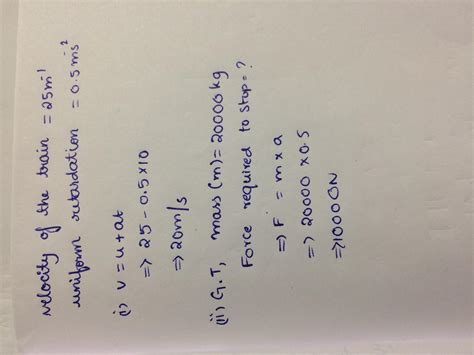 velocity of the train = 25m⁻¹
uniform retardation = 0.5ms⁻²
i) v = u+at
⇒ 25 - 0.5×10
⇒ 20m/s
(ii) G.T, mass (m) = 20000 kg
Force required to stop = ?
⇒ F = m × a
⇒ 20000 × 0.5
⇒ 1000 0N